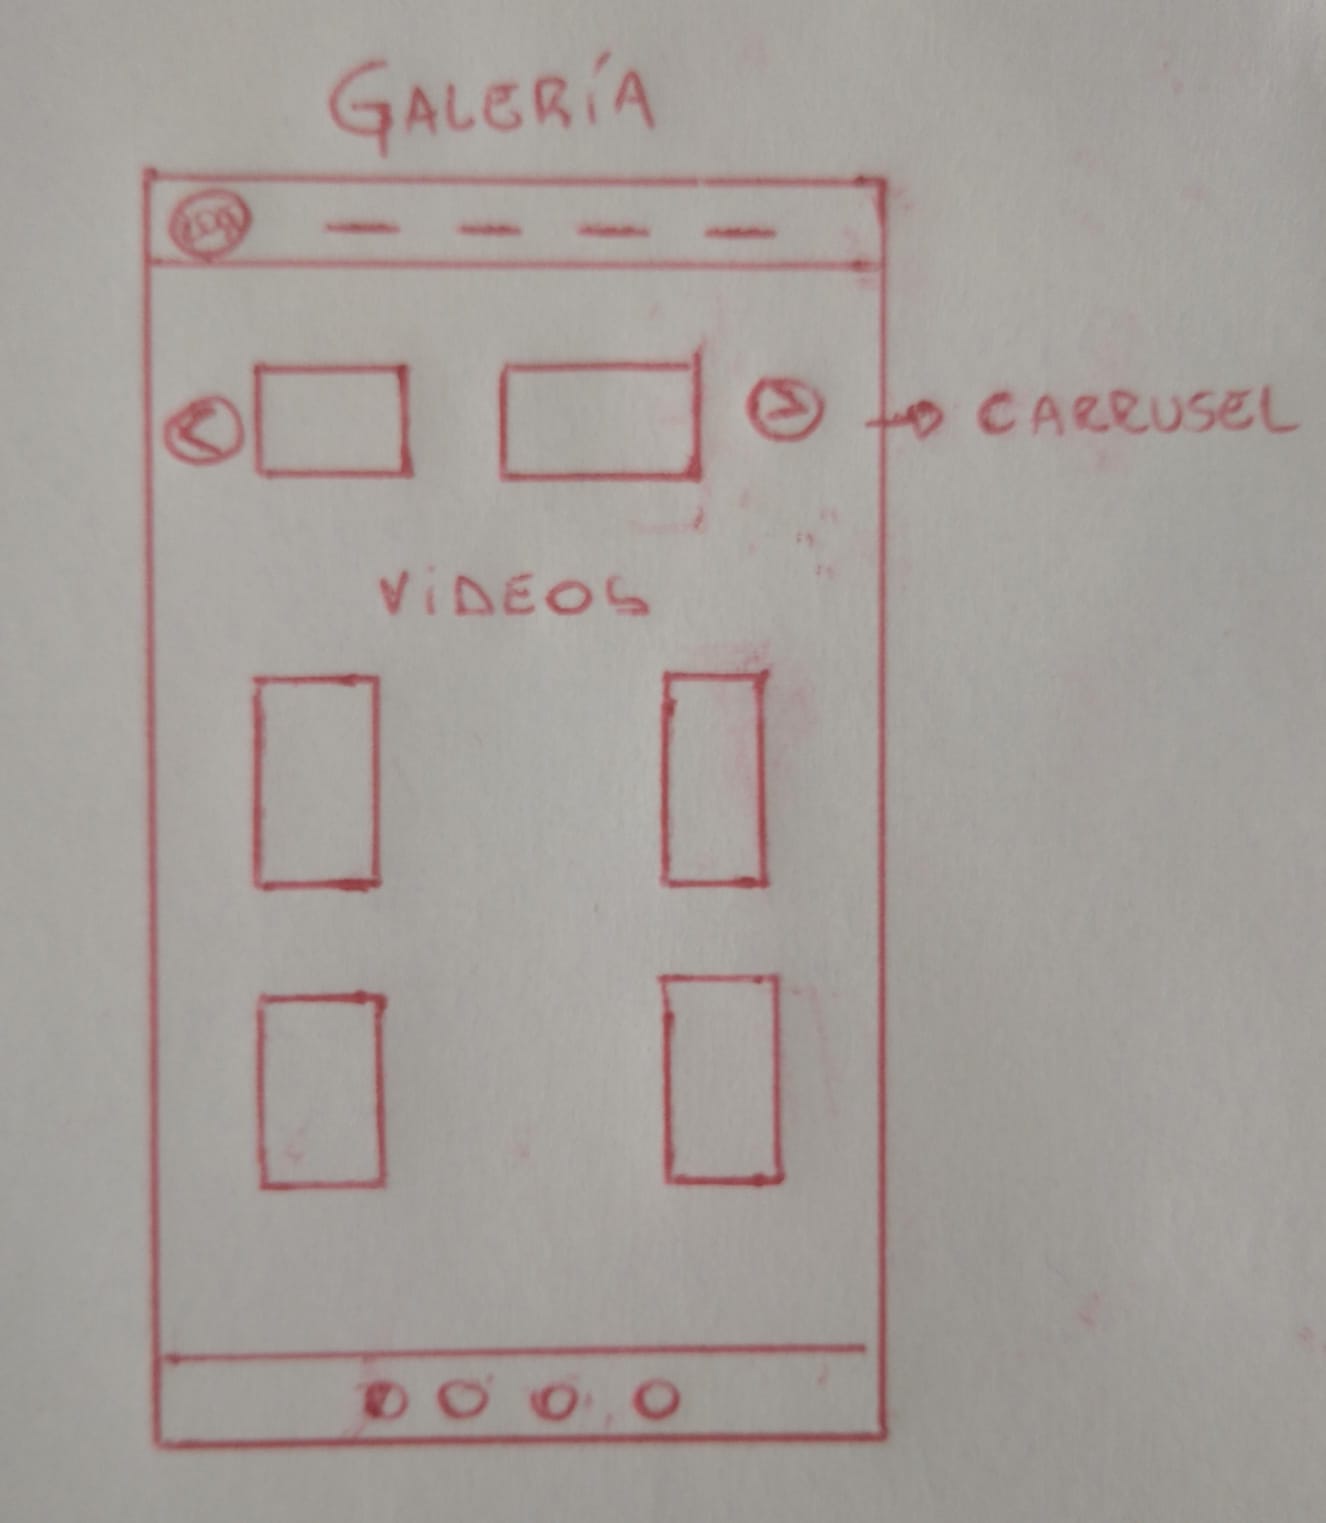 GALERÍA
CARRUSEL
ViDEOS